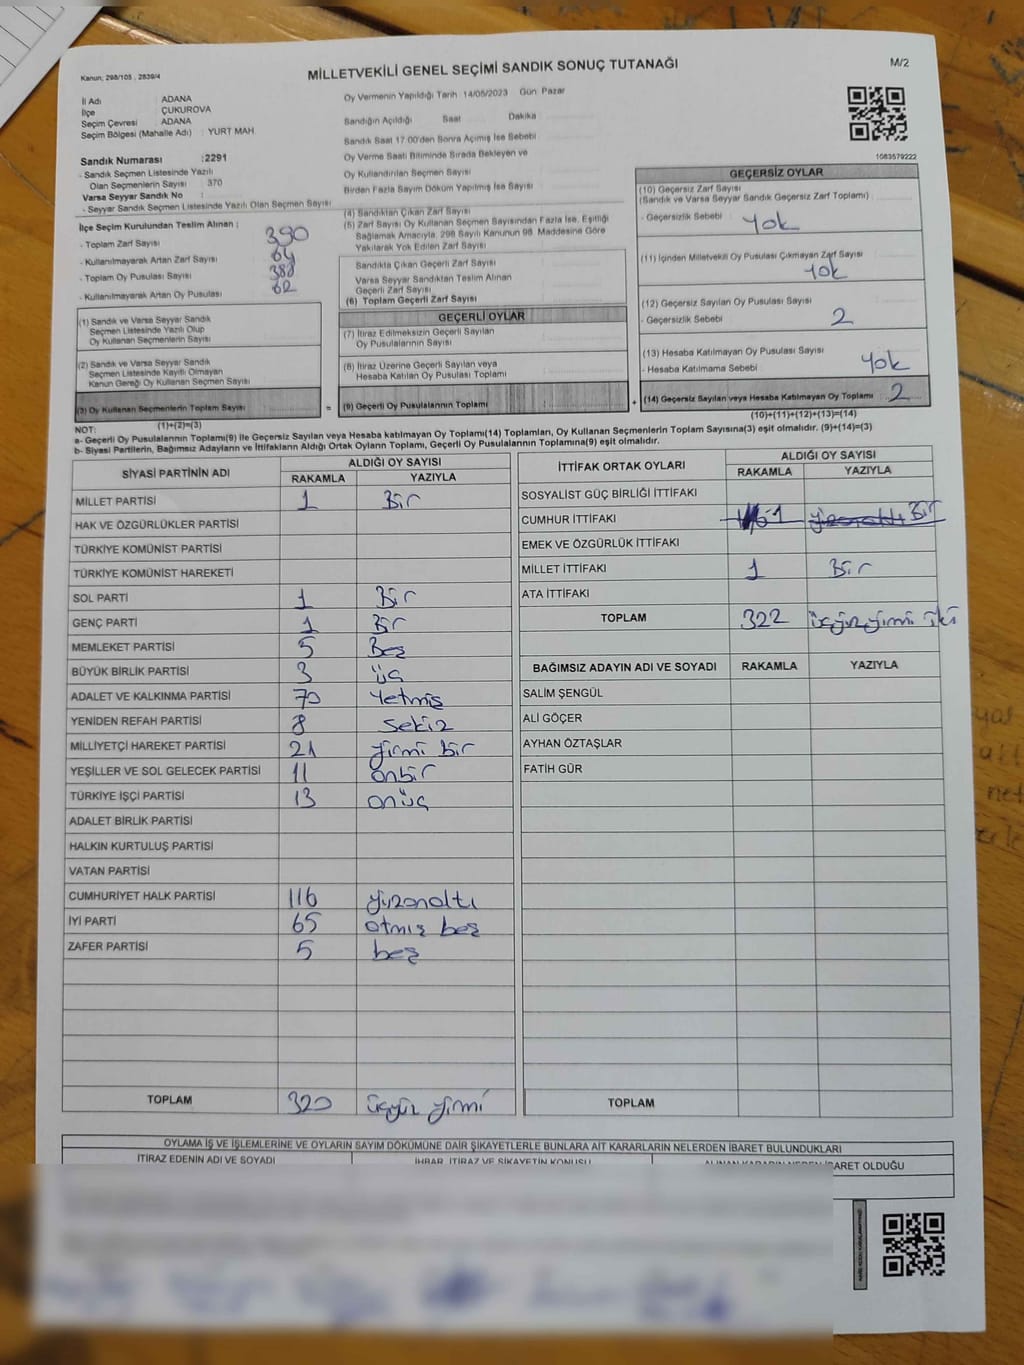 Kanun; 298/105 , 2839/4
MİLLETVEKİLİ GENEL SEÇİMİ SANDIK SONUÇ TUTANAĞI
M/2
İl Adı : ADANA
İlçe : ÇUKUROVA
Seçim Çevresi : ADANA
Seçim Bölgesi (Mahalle Adı) : YURT MAH.
Sandık Numarası :2291
- Sandık Seçmen Listesinde Yazılı
Olan Seçmenlerin Sayısı : 370
Varsa Seyyar Sandık No :
- Seyyar Sandık Seçmen Listesinde Yazılı Olan Seçmen Sayısı
İlçe Seçim Kurulundan Teslim Alınan ;
- Toplam Zarf Sayısı 390
- Kullanılmayarak Artan Zarf Sayısı 64
- Toplam Oy Pusulası Sayısı 388
- Kullanılmayarak Artan Oy Pusulası 62
(1) Sandık ve Varsa Seyyar Sandık
Seçmen Listesinde Yazılı Olup
Oy Kullanan Seçmenlerin Sayısı
(2) Sandık ve Varsa Seyyar Sandık
Listesinde Kayıtlı Olmayan
Kanun Gereği Oy Kullanan Seçmen Sayısı
(3) Oy Kullanan Seçmenlerin Toplam Sayısı
(1)+(2)=(3)
Oy Vermenin Yapıldığı Tarih 14/05/2023 Gün Pazar
Sandığın Açıldığı Saat Dakika
Sandık Saat 17.00'den Sonra Açımış İse Sebebi
Oy Verme Saati Bitiminde Sırada Bekleyen ve
Oy Kullandırılan Seçmen Sayısı
Birden Fazla Sayım Döküm Yapılmış İse Sayısı
(4) Sandıktan Çıkan Zarf Sayısı
(5) Zarf Sayısı Oy Kullanan Seçmen Sayısından Fazla İse, Eşitliği
Sağlamak Amacıyla, 298 Sayılı Kanunun 98. Maddesine Göre
Yakılarak Yok Edilen Zarf Sayısı
Sandıkta Çıkan Geçerli Zarf Sayısı
Varsa Seyyar Sandıktan Teslim Alınan
Geçerli Zarf Sayısı
(6) Toplam Geçerli Zarf Sayısı
GEÇERLİ OYLAR
(7) İtiraz Edilmeksizin Geçerli Sayılan
Oy Pusulalarının Sayısı
(8) İtiraz Üzerine Geçerli Sayılan veya
Hesaba Katılan Oy Pusulası Toplamı
= (9) Geçerli Oy Pusulalarının Toplamı +
1083579222
GEÇERSİZ OYLAR
(10) Geçersiz Zarf Sayısı
(Sandık ve Varsa Seyyar Sandık Geçersiz Zarf Toplamı)
- Geçersizlik Sebebi Yok
(11) İçinden Milletvekili Oy Pusulası Çıkmayan Zarf Sayısı
Yok
(12) Geçersiz Sayılan Oy Pusulası Sayısı
- Geçersizlik Sebebi 2
(13) Hesaba Katılmayan Oy Pusulası Sayısı
- Hesaba Katılmama Sebebi Yok
(14) Geçersiz Sayılan veya Hesaba Katılmayan Oy Toplamı 2
(10)+(11)+(12)+(13)=(14)
NOT:
a- Geçerli Oy Pusulalarının Toplamı(9) ile Geçersiz Sayılan veya Hesaba katılmayan Oy Toplamı(14) Toplamları, Oy Kullanan Seçmenlerin Toplam Sayısına(3) eşit olmalıdır. (9)+(14)=(3)
b- Siyasi Partilerin, Bağımsız Adayların ve İttifakların Aldığı Ortak Oyların Toplamı, Geçerli Oy Pusulalarının Toplamına(9) eşit olmalıdır.
SİYASİ PARTİNİN ADI ALDIĞI OY SAYISI
RAKAMLA YAZIYLA
MİLLET PARTİSİ 1 Bir
HAK VE ÖZGÜRLÜKLER PARTİSİ
TÜRKİYE KOMÜNİST PARTİSİ
TÜRKİYE KOMÜNİST HAREKETİ
SOL PARTİ 1 Bir
GENÇ PARTİ 1 Bir
MEMLEKET PARTİSİ 5 Beş
BÜYÜK BİRLİK PARTİSİ 3 üç
ADALET VE KALKINMA PARTİSİ 70 Yetmiş
YENİDEN REFAH PARTİSİ 8 Sekiz
MİLLİYETÇİ HAREKET PARTİSİ 21 yirmi bir
YEŞİLLER VE SOL GELECEK PARTİSİ 11 onbir
TÜRKİYE İŞÇİ PARTİSİ 13 onüç
ADALET BİRLİK PARTİSİ
HALKIN KURTULUŞ PARTİSİ
VATAN PARTİSİ
CUMHURİYET HALK PARTİSİ 116 yüzonaltı
İYİ PARTİ 65 otmış beş
ZAFER PARTİSİ 5 beş
TOPLAM 320 üçyüz yirmi
İTTİFAK ORTAK OYLARI ALDIĞI OY SAYISI
RAKAMLA YAZIYLA
SOSYALİST GÜÇ BİRLİĞİ İTTİFAKI
CUMHUR İTTİFAKI 1 Bir
EMEK VE ÖZGÜRLÜK İTTİFAKI
MİLLET İTTİFAKI 1 Bir
ATA İTTİFAKI
TOPLAM 322 üçyüzyirmi iki
BAĞIMSIZ ADAYIN ADI VE SOYADI RAKAMLA YAZIYLA
SALİM ŞENGÜL
ALİ GÖÇER
AYHAN ÖZTAŞLAR
FATİH GÜR
TOPLAM
OYLAMA İŞ VE İŞLEMLERİNE VE OYLARIN SAYIM DÖKÜMÜNE DAİR ŞİKAYETLERLE BUNLARA AİT KARARLARIN NELERDEN İBARET BULUNDUKLARI
İTİRAZ EDENİN ADI VE SOYADI İHBAR, İTİRAZ VE ŞİKAYETİN KONUSU ALINAN KARARIN NEDEN İBARET OLDUĞU